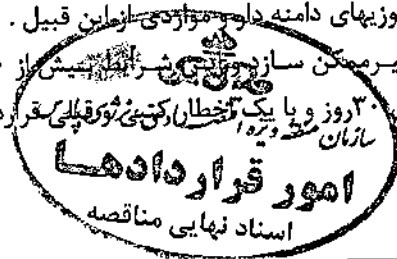 وزیهای دامنه دار و مواردی از این قبیل .
یرممکن سازد و این شرایط بیش از
۳۰ روز و با یک اخطار کتبی
سازمان منطقه ویژه
امور قراردادها
اسناد نهایی مناقصه